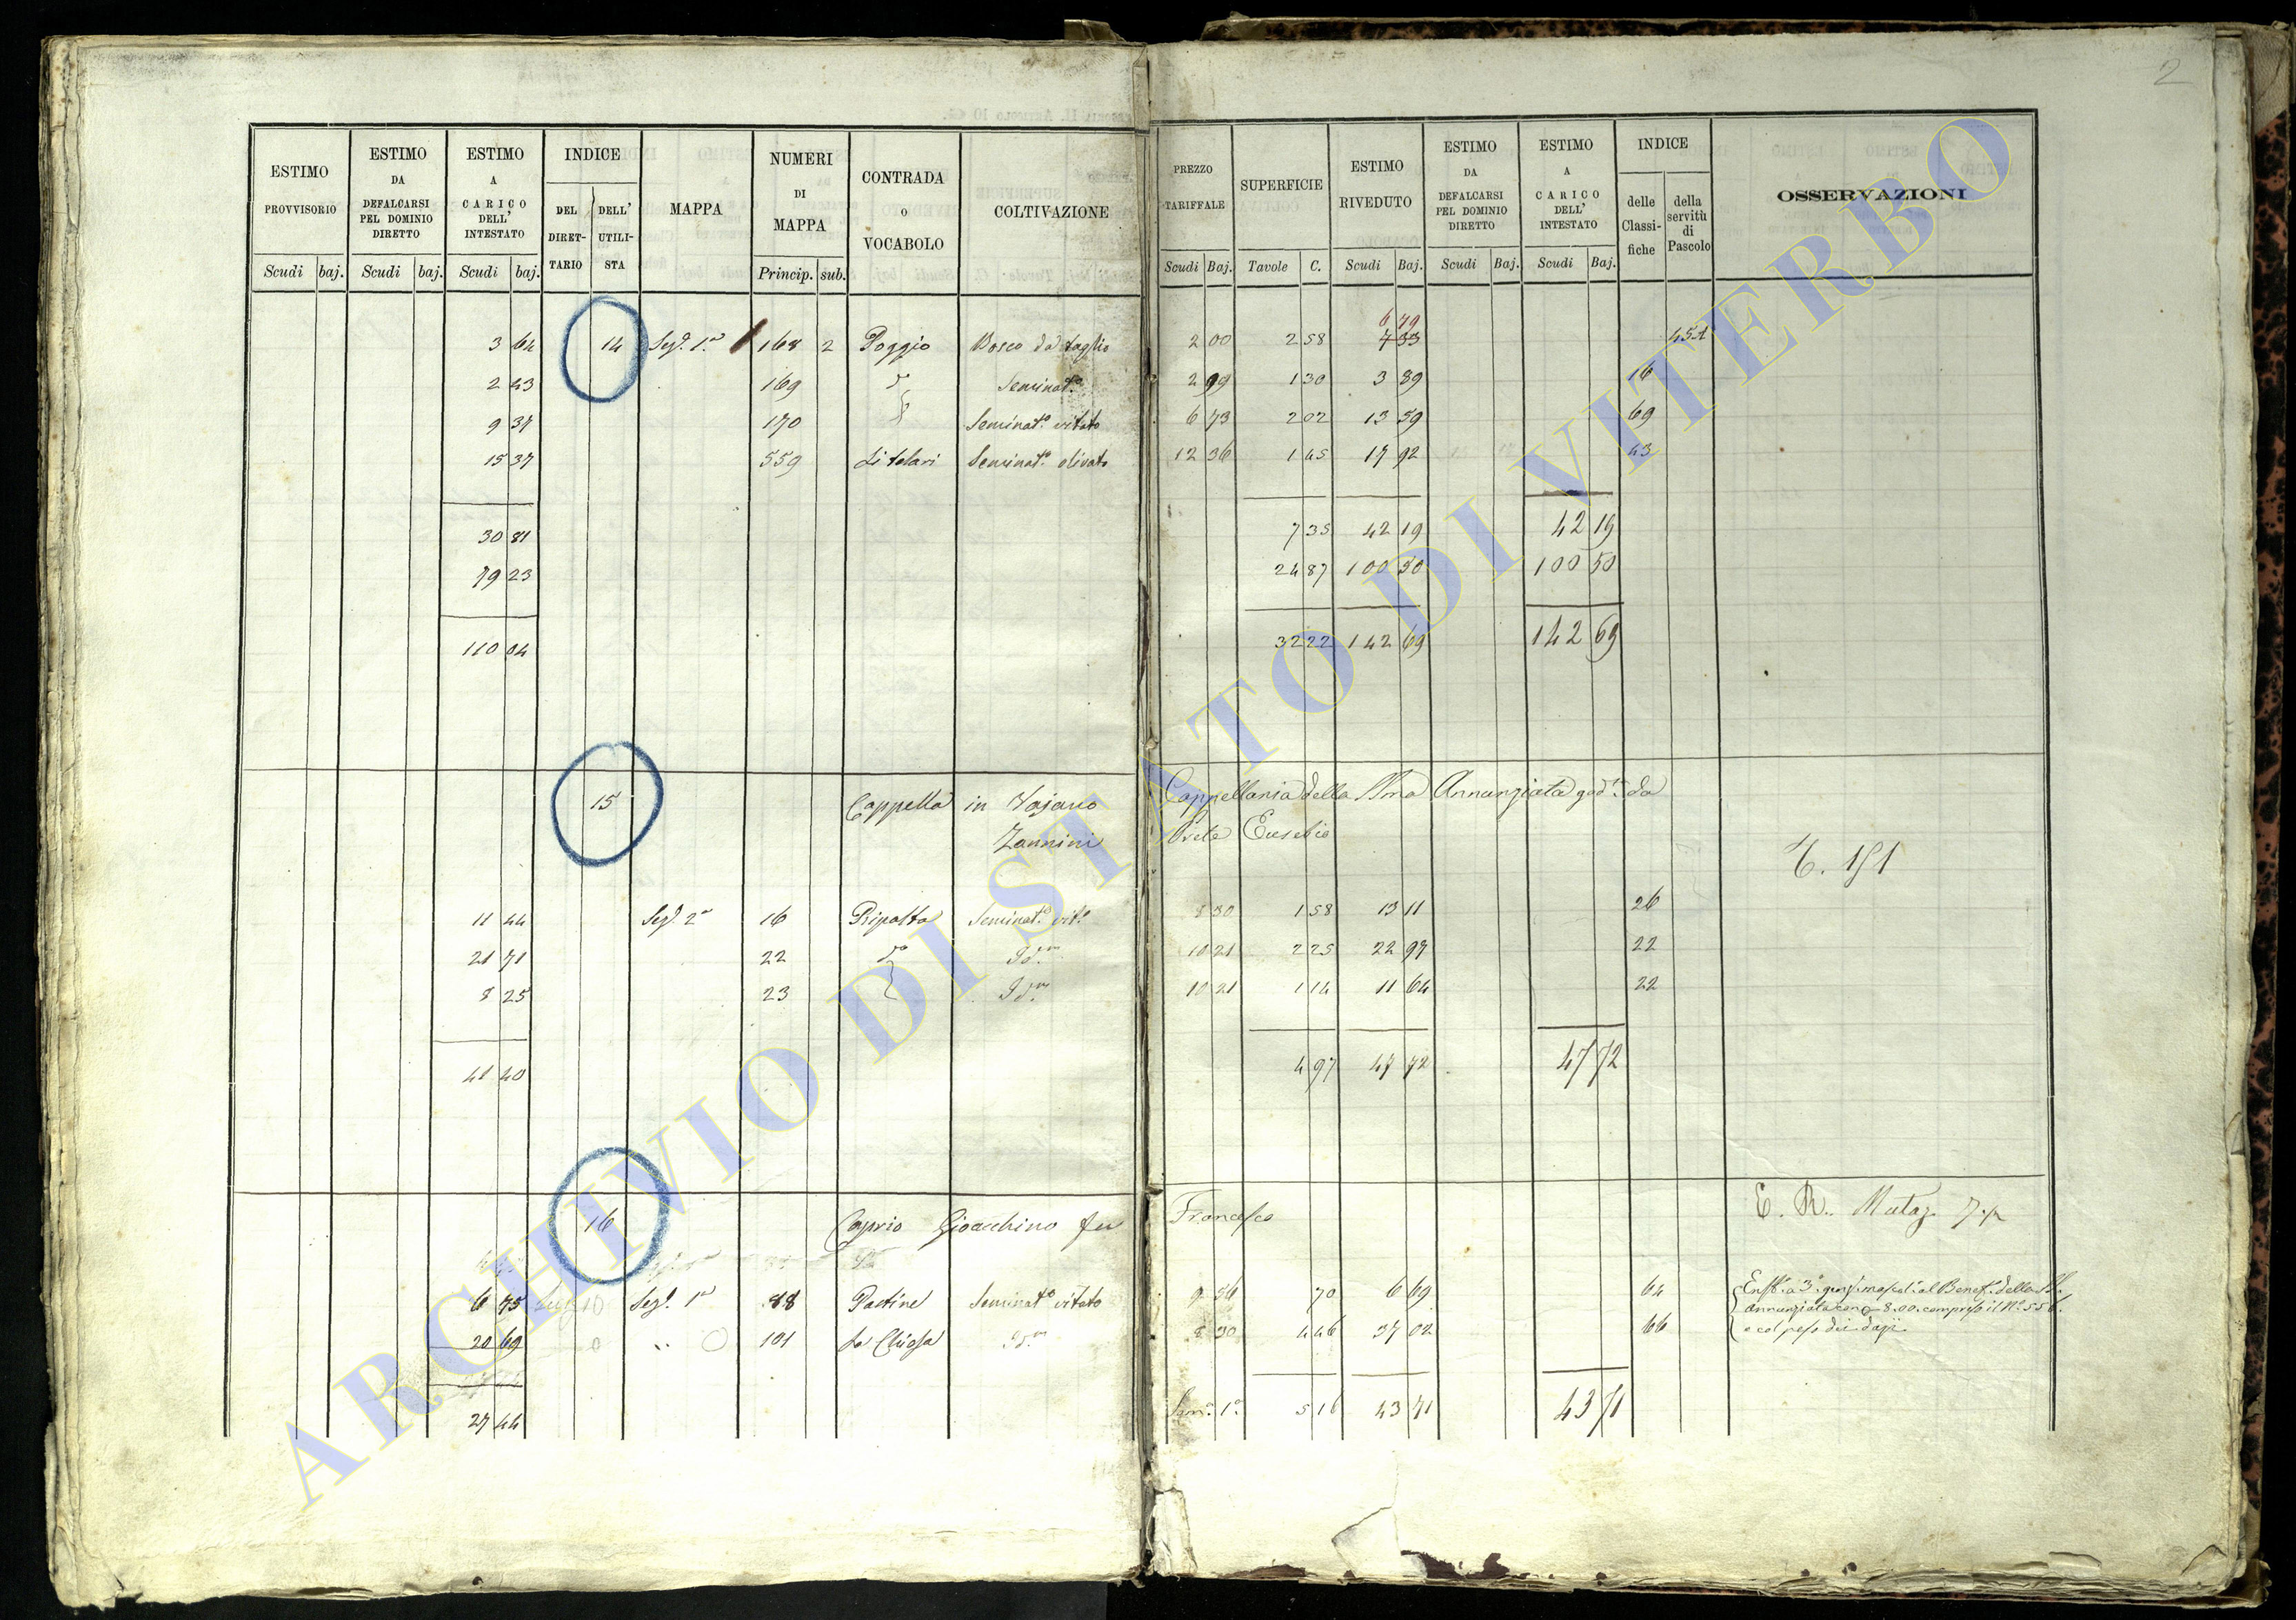 2
ESTIMO PROVVISORIO
ESTIMO DA DEFALCARSI PEL DOMINIO DIRETTO
ESTIMO A CARICO DELL' INTESTATO
INDICE
DEL DIRET-TARIO
DELL' UTILI-STA
MAPPA
NUMERI DI MAPPA
CONTRADA o VOCABOLO
COLTIVAZIONE
PREZZO TARIFFALE
SUPERFICIE
ESTIMO RIVEDUTO
ESTIMO DA DEFALCARSI PEL DOMINIO DIRETTO
ESTIMO A CARICO DELL' INTESTATO
INDICE
delle Classi-fiche
della servitù di Pascolo
OSSERVAZIONI
Scudi baj. Scudi baj. Scudi baj. Princip. sub. Scudi Baj. Tavole C. Scudi Baj. Scudi Baj. Scudi Baj.
6 79
3 64 14 Sez. 1a 168 2 Poggio Bosco da taglio 2 00 2 58 7 33 451
2 43 169 do Seminato 2 99 1 30 3 89 16
9 37 170 Seminato vitato 6 73 2 02 13 59 69
15 37 559 Li telari Seminato olivato 12 36 1 45 17 92 43
30 81 7 35 42 19 42 19
79 23 24 87 100 50 100 50
110 04 32 22 142 69 142 69
15 Cappella in Vajano Cappellania della SSma Annunziata goda da
Zannini Prete Eusebio
11 44 Sez. 2a 16 Ripalta Seminato vito 8 30 1 58 13 11 26
21 71 22 do Idm 10 21 2 25 22 97 22
8 25 23 Idm 10 21 1 14 11 64 22
41 40 4 97 47 72 47 72
16 Caprio Gioacchino fu Francesco
E. R. Mutaz.
6 75 Sez. 1a 88 Pastine Seminato vitato 9 56 70 6 69 64
20 69 101 La Chiosa Idm 8 30 4 46 37 02 66
annunziata con 8.00. compreso il No 556.
e col peso dei dazi
27 44 5 16 43 71 43 71
ARCHIVIO DI STATO DI VITERBO